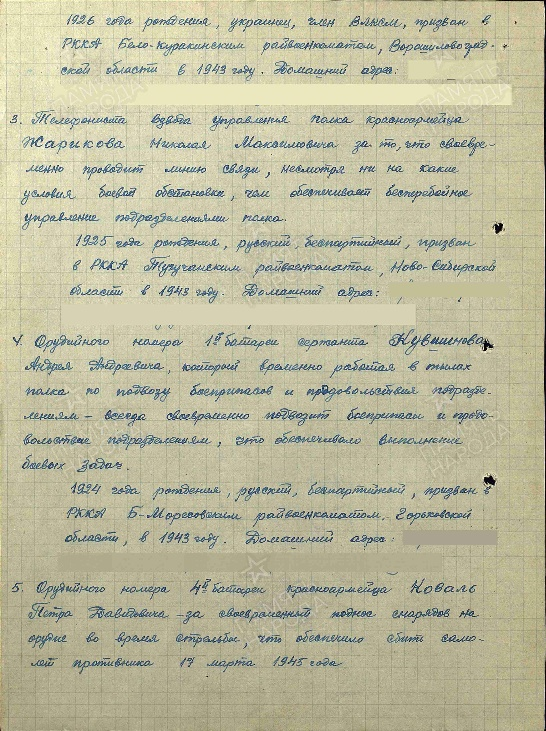 1926 года рождения, украинец, член ВЛКСМ, призван в
РККА Бело-Куракинским райвоенкоматом, Ворошиловоград-
ской области в 1943 году. Домашний адрес:
3. Телефониста взвода управления полка красноармейца
Жарикова Николая Максимовича за то, что своевре-
менно проводит линию связи, несмотря ни на какие
условия боевой обстановки, чем обеспечивает бесперебойное
управление подразделениями полка.
1925 года рождения, русский, беспартийный, призван
в РККА райвоенкоматом, Ново-Сибирской
области в 1943 году. Домашний адрес:
4. Орудийного номера 1й батареи сержанта Кувшинова
Андрея Андреевича, который временно работая в тылах
полка по подвозу боеприпасов и продовольствия подразде-
лениям – всегда своевременно подвозит боеприпасы и продо-
вольствие подразделениям, что обеспечивало выполнение
боевых задач.
1924 года рождения, русский, беспартийный, призван в
РККА райвоенкоматом, Горьковской
области, в 1943 году. Домашний адрес:
5. Орудийного номера 4й батареи красноармейца Коваль
Петра Давидовича – за своевременный поднос снарядов на
орудие во время стрельбы, что обеспечило сбить само-
лет противника марта 1945 года